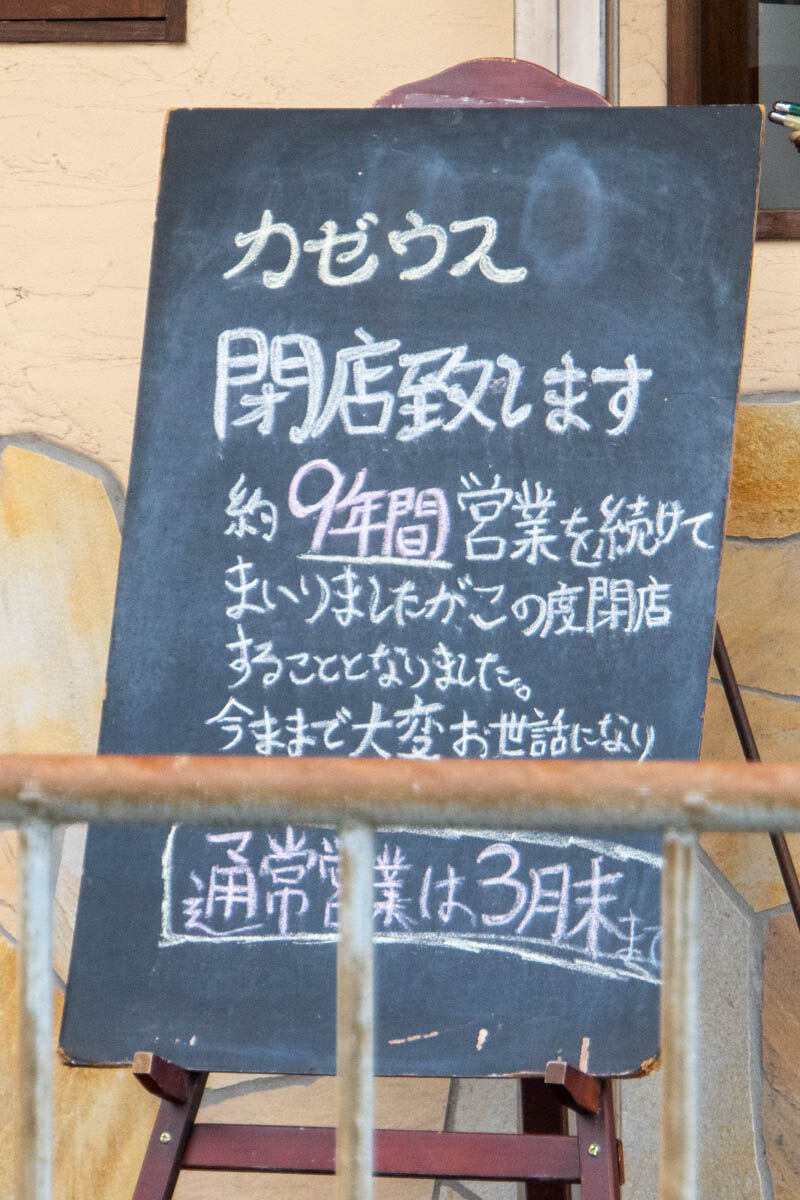 カゼウス
閉店致します
約9年間営業を続けて
まいりましたがこの度閉店
することとなりました。
今ままで大変お世話になり
通常営業は3月末まで